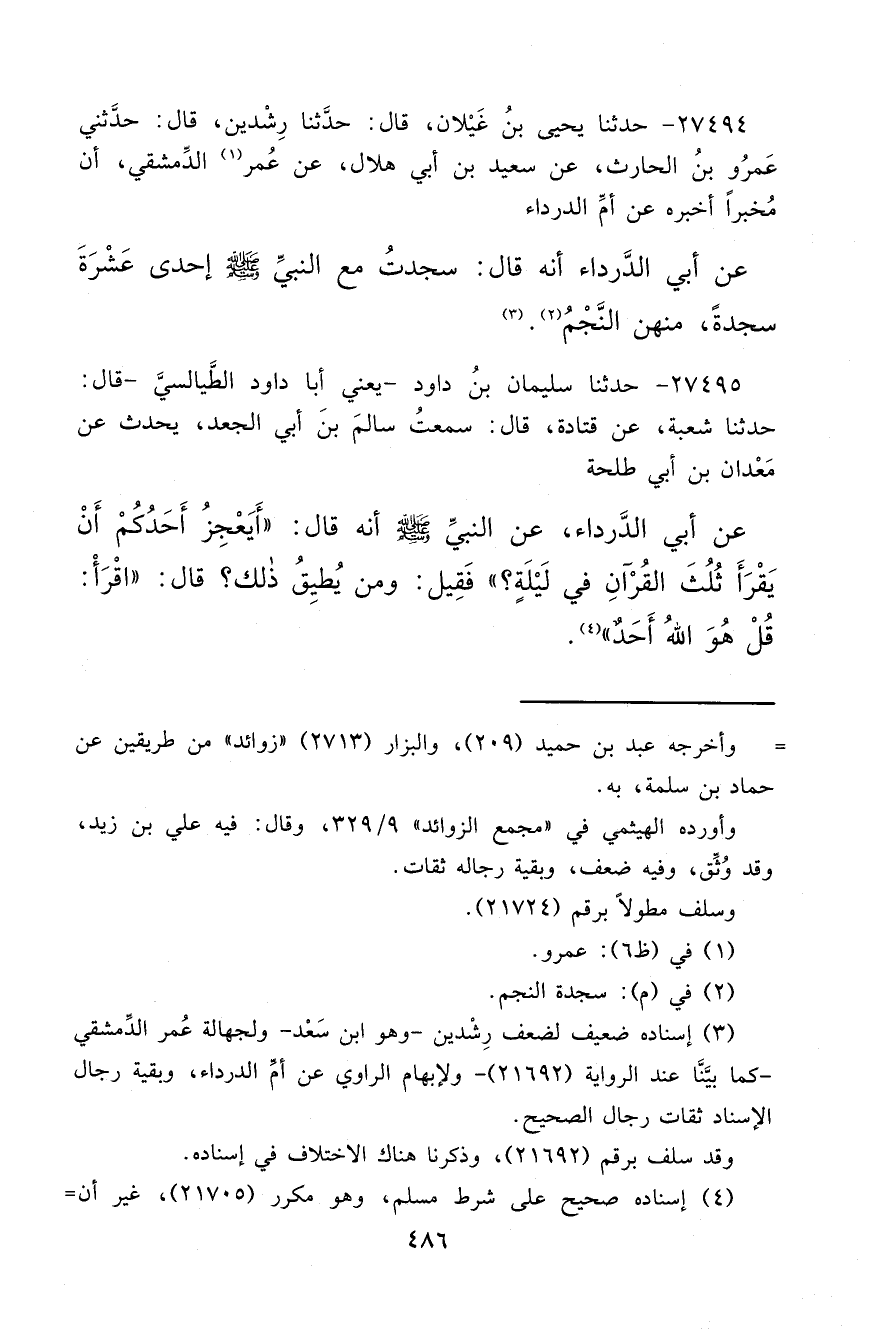 ٢٧٤٩٤- حدثنا يحيى بنُ غَيْلان، قال: حدَّثنا رِشْدين، قال: حدَّثني
عَمرُو بنُ الحارث، عن سعيد بن أبي هلال، عن عُمر(١) الدِّمشقي، أن
مُخبراً أخبره عن أمِّ الدرداء
عن أبي الدَّرداء أنه قال: سجدتُ مع النبيِّ ﷺ إحدى عَشْرَةَ
سجدةً، منهن النَّجْمُ(٢).(٣)
٢٧٤٩٥- حدثنا سليمان بنُ داود -يعني أبا داود الطَّيالسيَّ -قال:
حدثنا شعبة، عن قتادة، قال: سمعتُ سالمَ بنَ أبي الجعد، يحدث عن
مَعْدان بن أبي طلحة
عن أبي الدَّرداء، عن النبيِّ ﷺ أنه قال: «أَيَعْجِزُ أَحَدُكُمْ أَنْ
يَقْرَأَ ثُلُثَ القُرْآنِ في لَيْلَةٍ؟» فَقِيل: ومن يُطيِقُ ذٰلك؟ قال: «اقْرَأْ:
قُلْ هُوَ اللهُ أَحَدٌ»(٤).
= وأخرجه عبد بن حميد (٢٠٩)، والبزار (٢٧١٣) «زوائد» من طريقين عن
حماد بن سلمة، به.
وأورده الهيثمي في «مجمع الزوائد» ٣٢٩/٩، وقال: فيه علي بن زيد،
وقد وُثِّق، وفيه ضعف، وبقية رجاله ثقات.
وسلف مطولاً برقم (٢١٧٢٤).
(١) في (ظ٦): عمرو.
(٢) في (م): سجدة النجم.
(٣) إسناده ضعيف لضعف رِشْدين -وهو ابن سَعْد- ولجهالة عُمر الدِّمشقي
-كما بيَّنَّا عند الرواية (٢١٦٩٢)- ولإبهام الراوي عن أمِّ الدرداء، وبقية رجال
الإسناد ثقات رجال الصحيح.
وقد سلف برقم (٢١٦٩٢)، وذكرنا هناك الاختلاف في إسناده.
(٤) إسناده صحيح على شرط مسلم، وهو مكرر (٢١٧٠٥)، غير أن=
٤٨٦